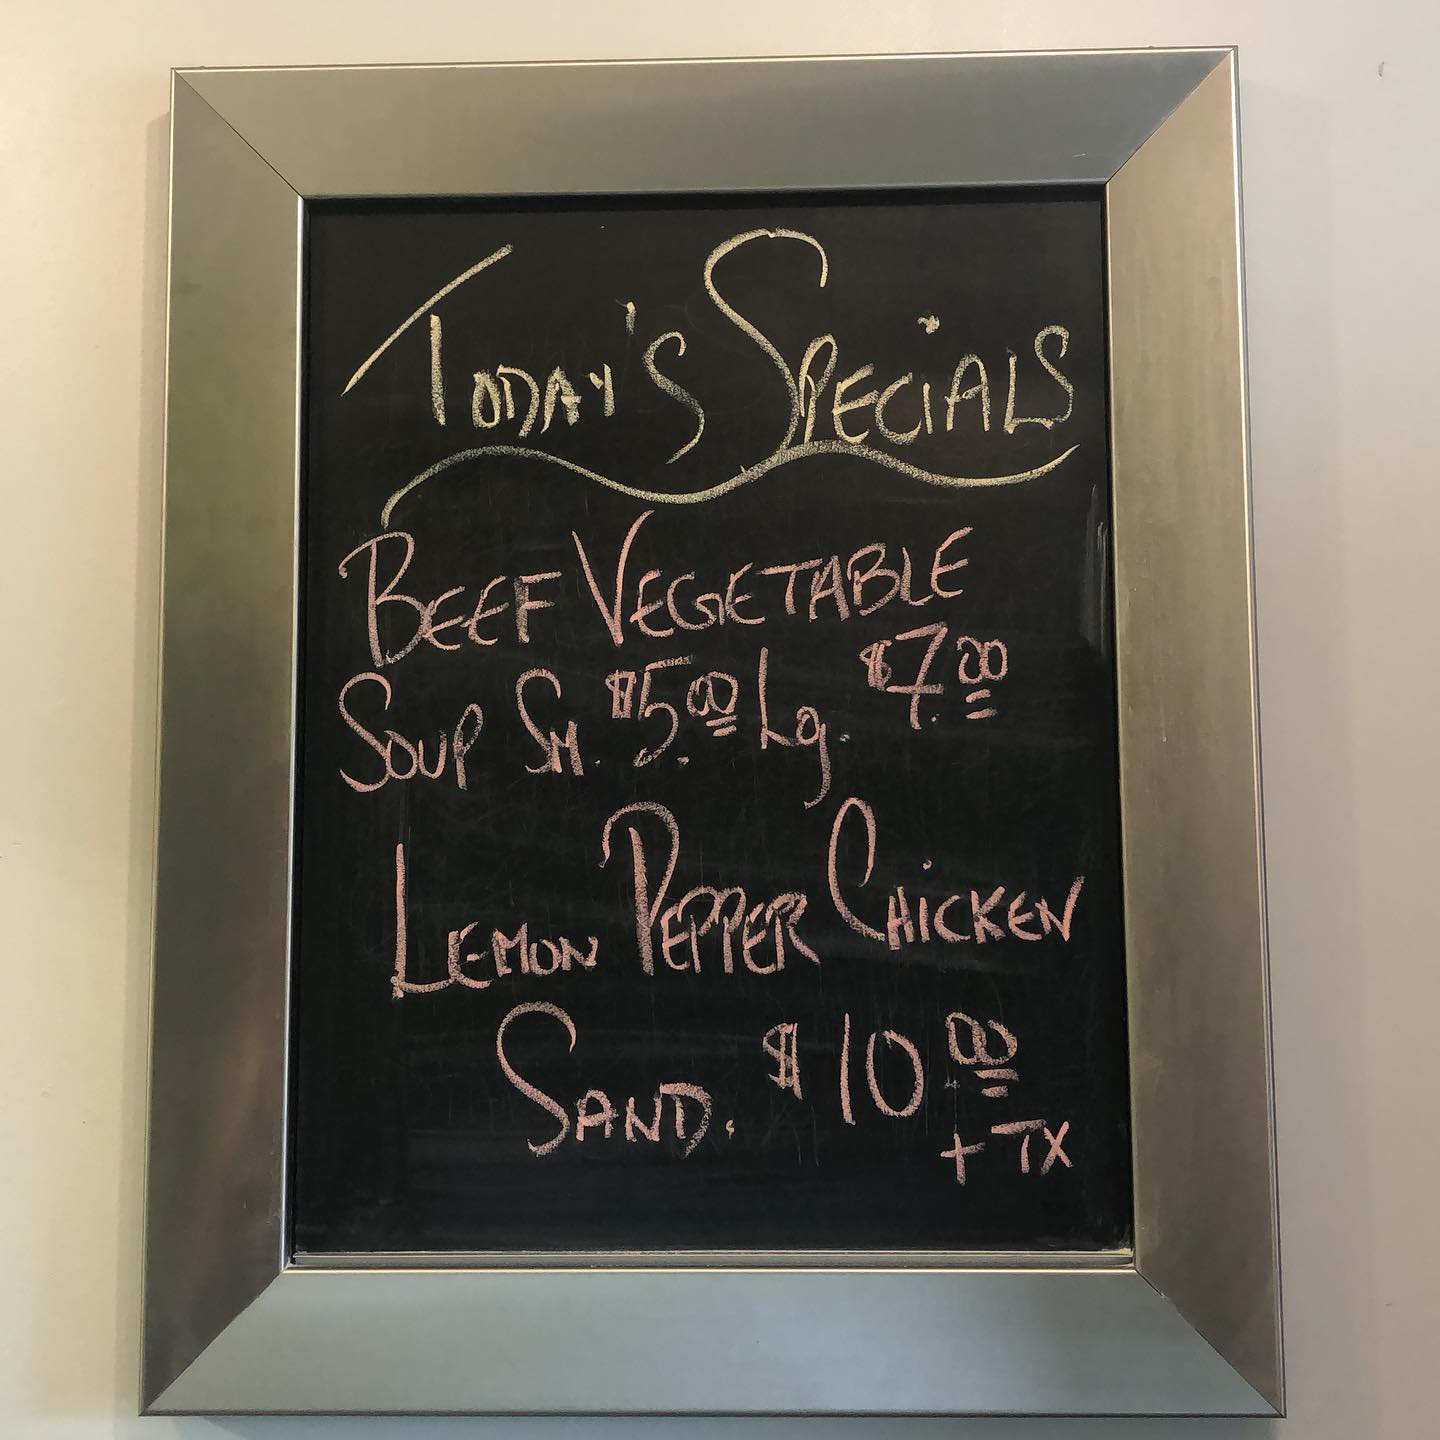 Today's Specials
Beef Vegetable
Soup Sm. $5.00 Lg. $7.00
Lemon Pepper Chicken
Sand. $10.00
+ TX